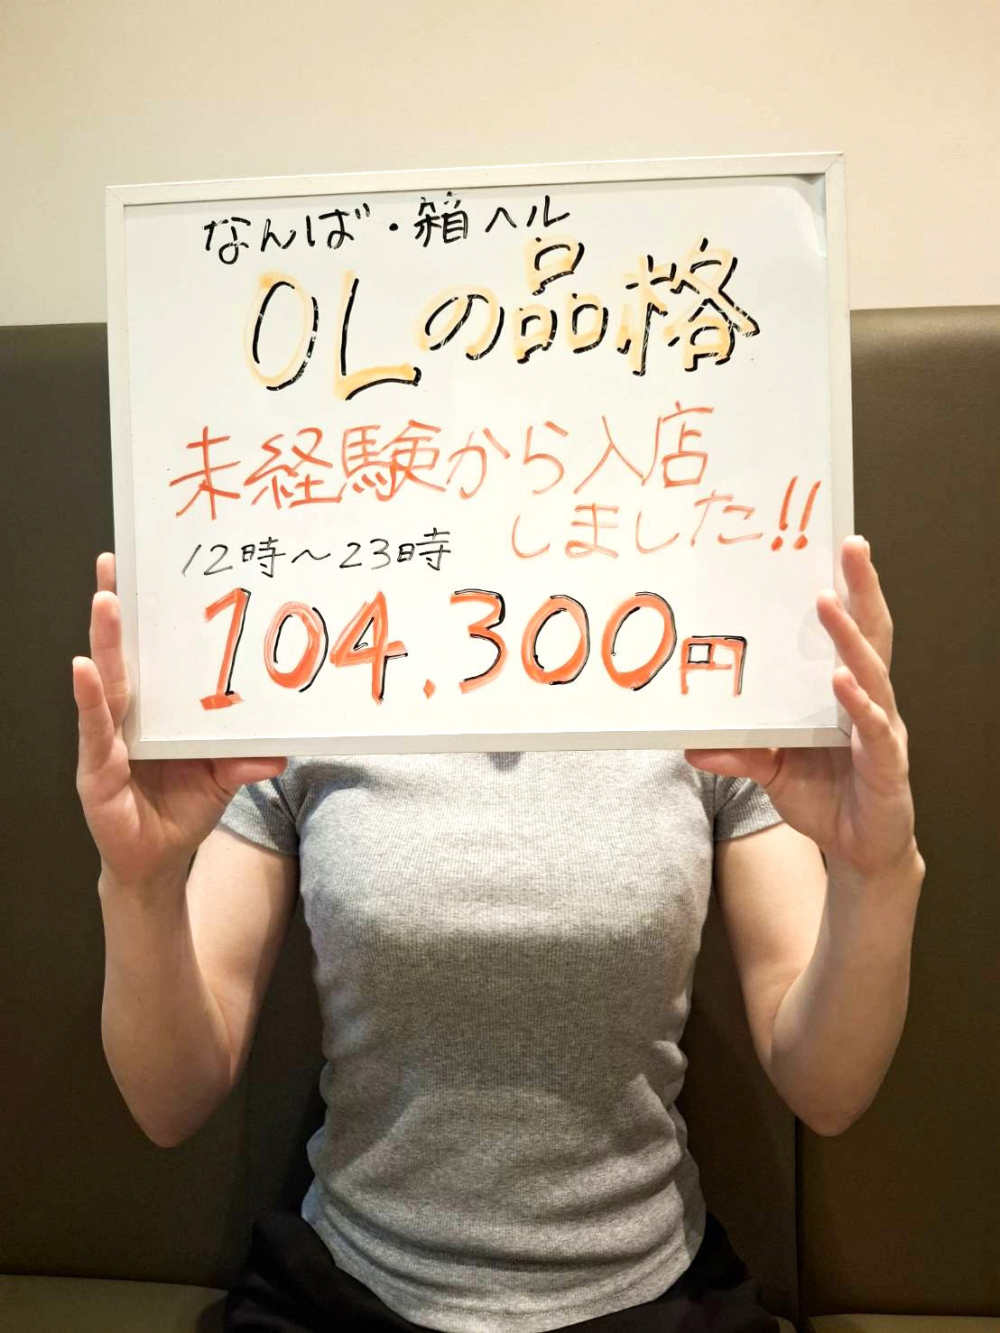 なんば・箱ヘル
OLの品格
未経験から入店
しました!!
12時～23時
104.300円